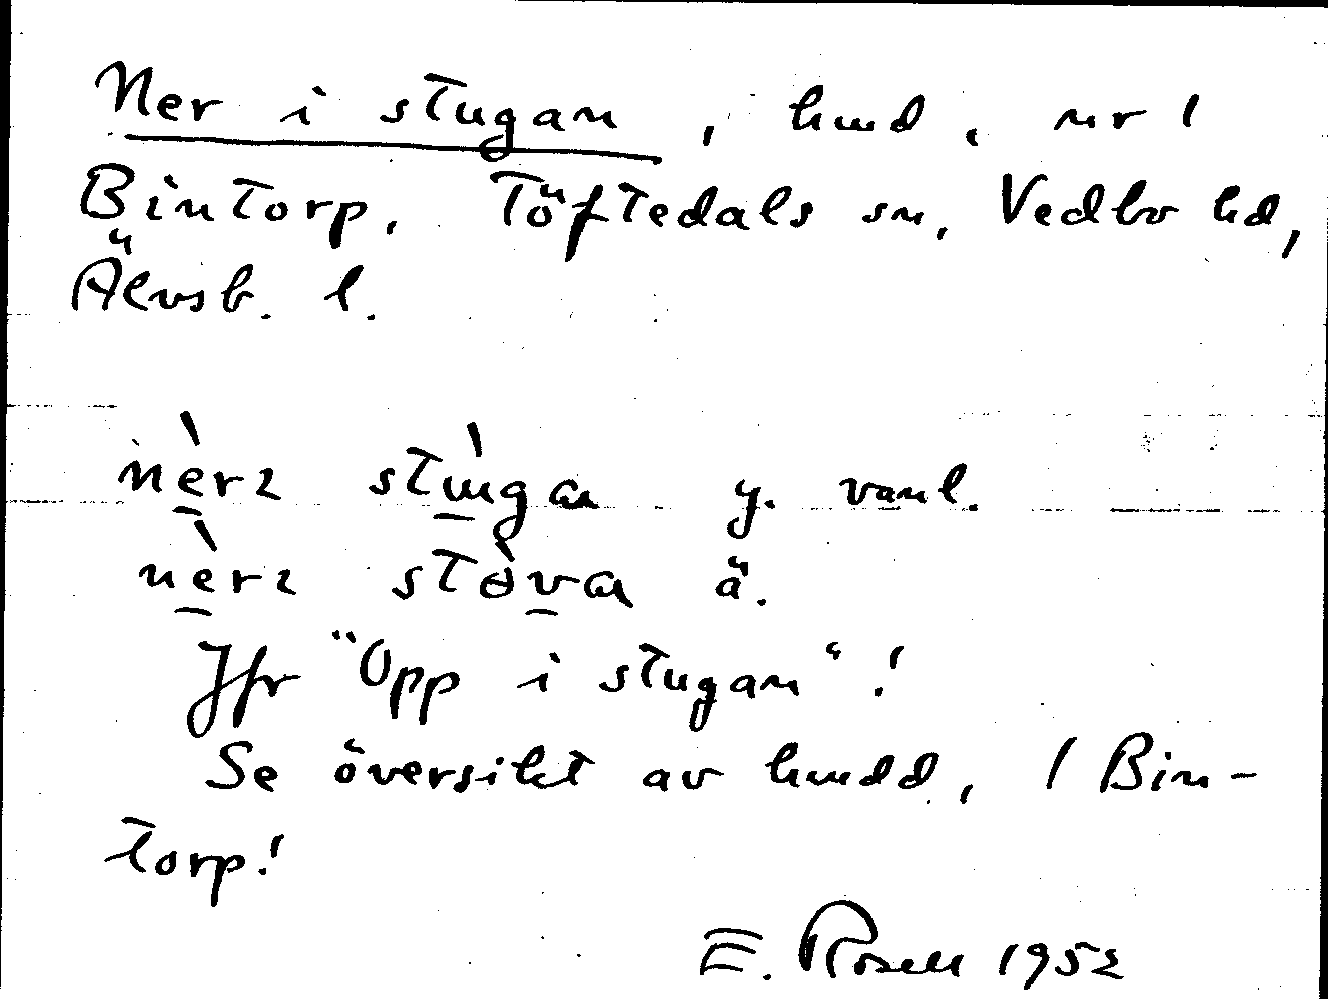 Ner i stugan, hmd, nr 1
Bintorp, Töftedals sn, Vedbo hd,
Älvsb. l.
nèrɩ stùgɑ y. vanl.
nèrɩ stɵ̀vɑ ä.
Jfr "Opp i stugan"!
Se översikt av hmdd, 1 Bin-
torp!
E. Rosell 1952